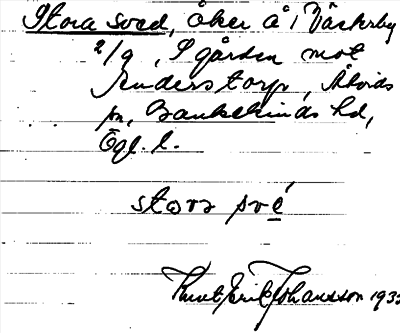 Stora sved, åker å i Västerby
2/9, S gården mot
Enderstorp, Åtvids
sn, Bankekinds hd,
Ögl. l.
stora své
Knut Eric Johansson 193